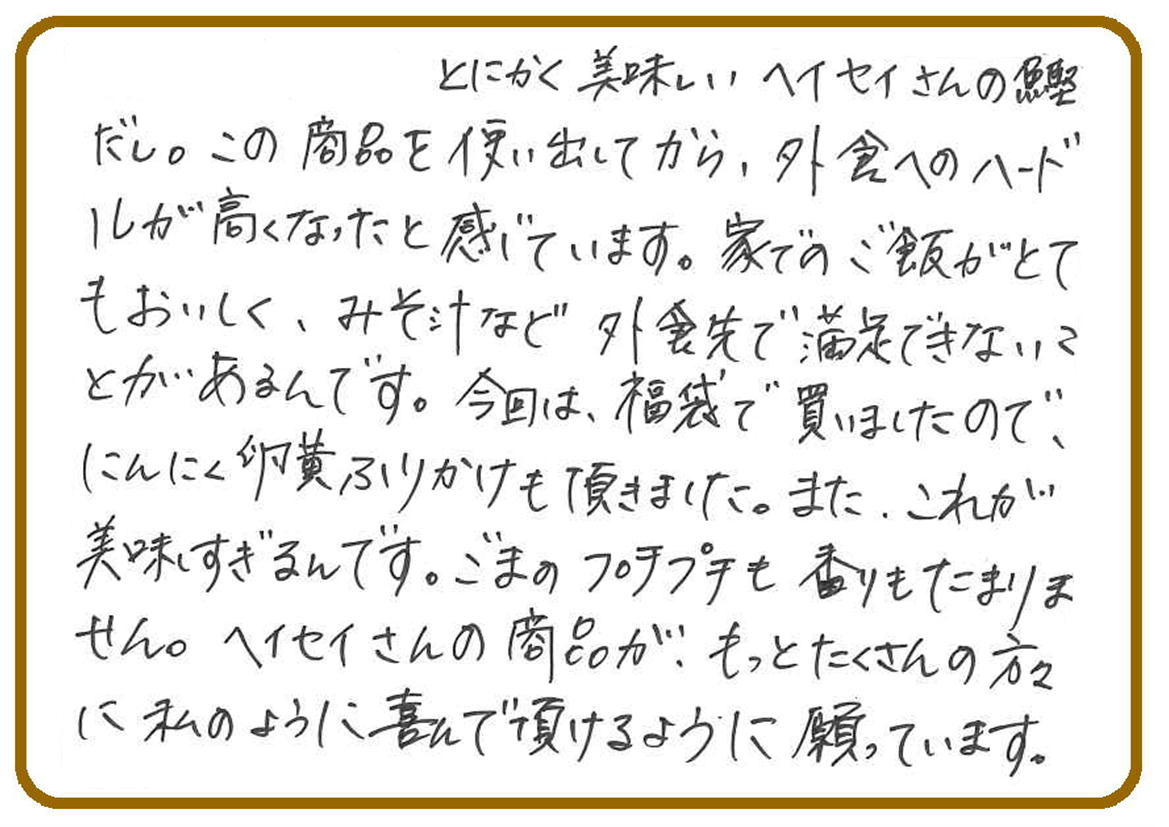 とにかく美味しいヘイセイさんの鰹
だし。この商品を使い出してから、外食へのハード
ルが高くなったと感じています。家でのご飯がとて
もおいしく、みそ汁など外食先で満足できないこ
とがあるんです。今回は、福袋で買いましたので、
にんにく卵黄ふりかけも頂きました。また、これが
美味しすぎるんです。ごまのプチプチも香りもたまりま
せん。ヘイセイさんの商品が、もっとたくさんの方々
に私のように喜んで頂けるように願っています。